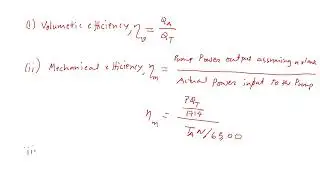 (i) Volumetric efficiency, η_v = Q_A / Q_T
(ii) Mechanical efficiency, η_m = Pump Power output assuming no leak / Actual Power input to the Pump
η_m = (P Q_T / 1714) / (T_A N / 6300)
iii.